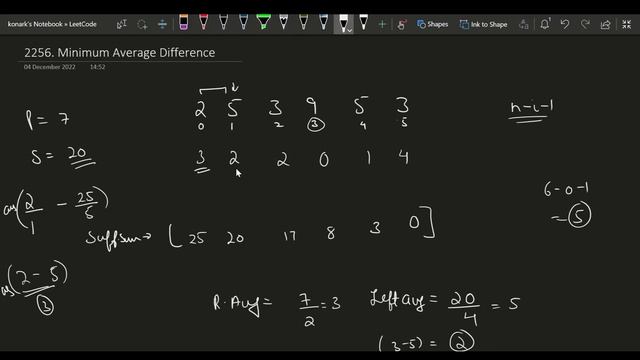 konark's Notebook » LeetCode
Shapes
Ink to Shape
2256. Minimum Average Difference
04 December 2022 14:52
P = 7
S = 20
2 5 3 9 5 3
0 1 2 3 4 5
3 2 2 0 1 4
n-i-1
6-0-1
= 5
(2/1 - 25/5)
Suffsum → [ 25 20 17 8 3 0 ]
(2-5)
3
R. Avg = 7/2 = 3
Left Avg = 20/4 = 5
(3-5) = 2